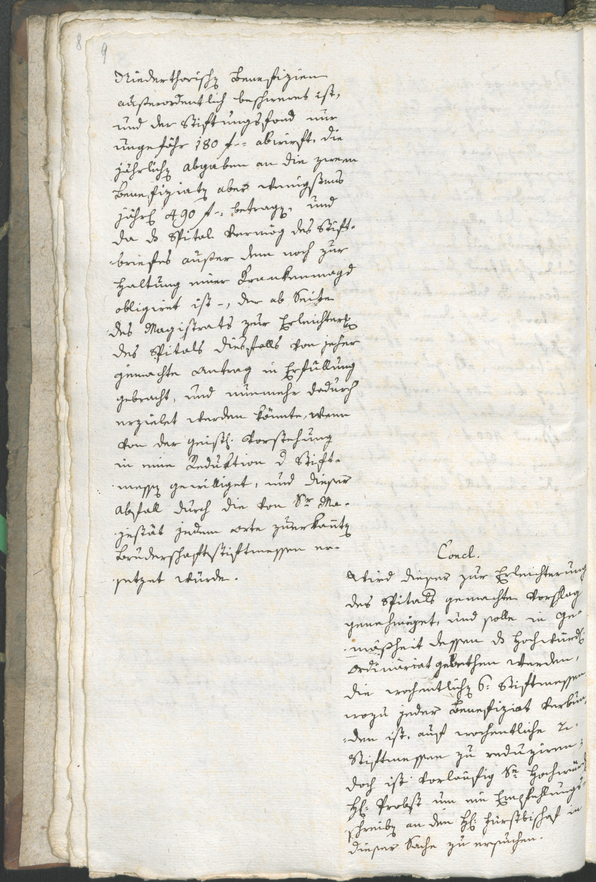 8 9
Niederthorisch Benefizien
außerordentlich beschweret ist,
und der Stiftungsfond nur
ungefähr 180 f. abwirft, die
jährlich Abgaben an die zween
Benefiziaten aber wenigstens
jährl 490 f. betrag, und
da ds Spital vermög des Stift-
briefes außer dem noch zur
Haltung einer Krankenmagd
obligiret ist, der ab Seite
des Magistrats zur Erleichter
des Spitals diesfalls von jeher
gemachte Antrag in Erfüllung
gebracht, und nunmehr dadurch
erzielet werden könnte, wenn
von der geistl. Vorstehung
in eine Reduktion d Stift-
messen gewilliget, und dieser
Abfall durch die von Sr Ma-
jestät jedem Orte zuerkannte
Bruderschaftsstiftmessen er-
setzet würde.
Concl.
Wird dieser zur Erleichterung
des Spitals gemachte Vorschlag
genehmiget, und solle in Ge-
mäßheit dessen ds Hochwürd
Ordinariat gebethen werden,
die wochentlich 6: Stiftmessen
wozu jeder Benefiziat verbun-
den ist, auf wochentliche 2.
Stiftmessen zu reduziren,
doch ist vorläufig Sr Hochwürd
Hl: Probst um ein Empfehlungs-
schreib an den Hl: Fürstbischof in
dieser Sache zu ersuchen.